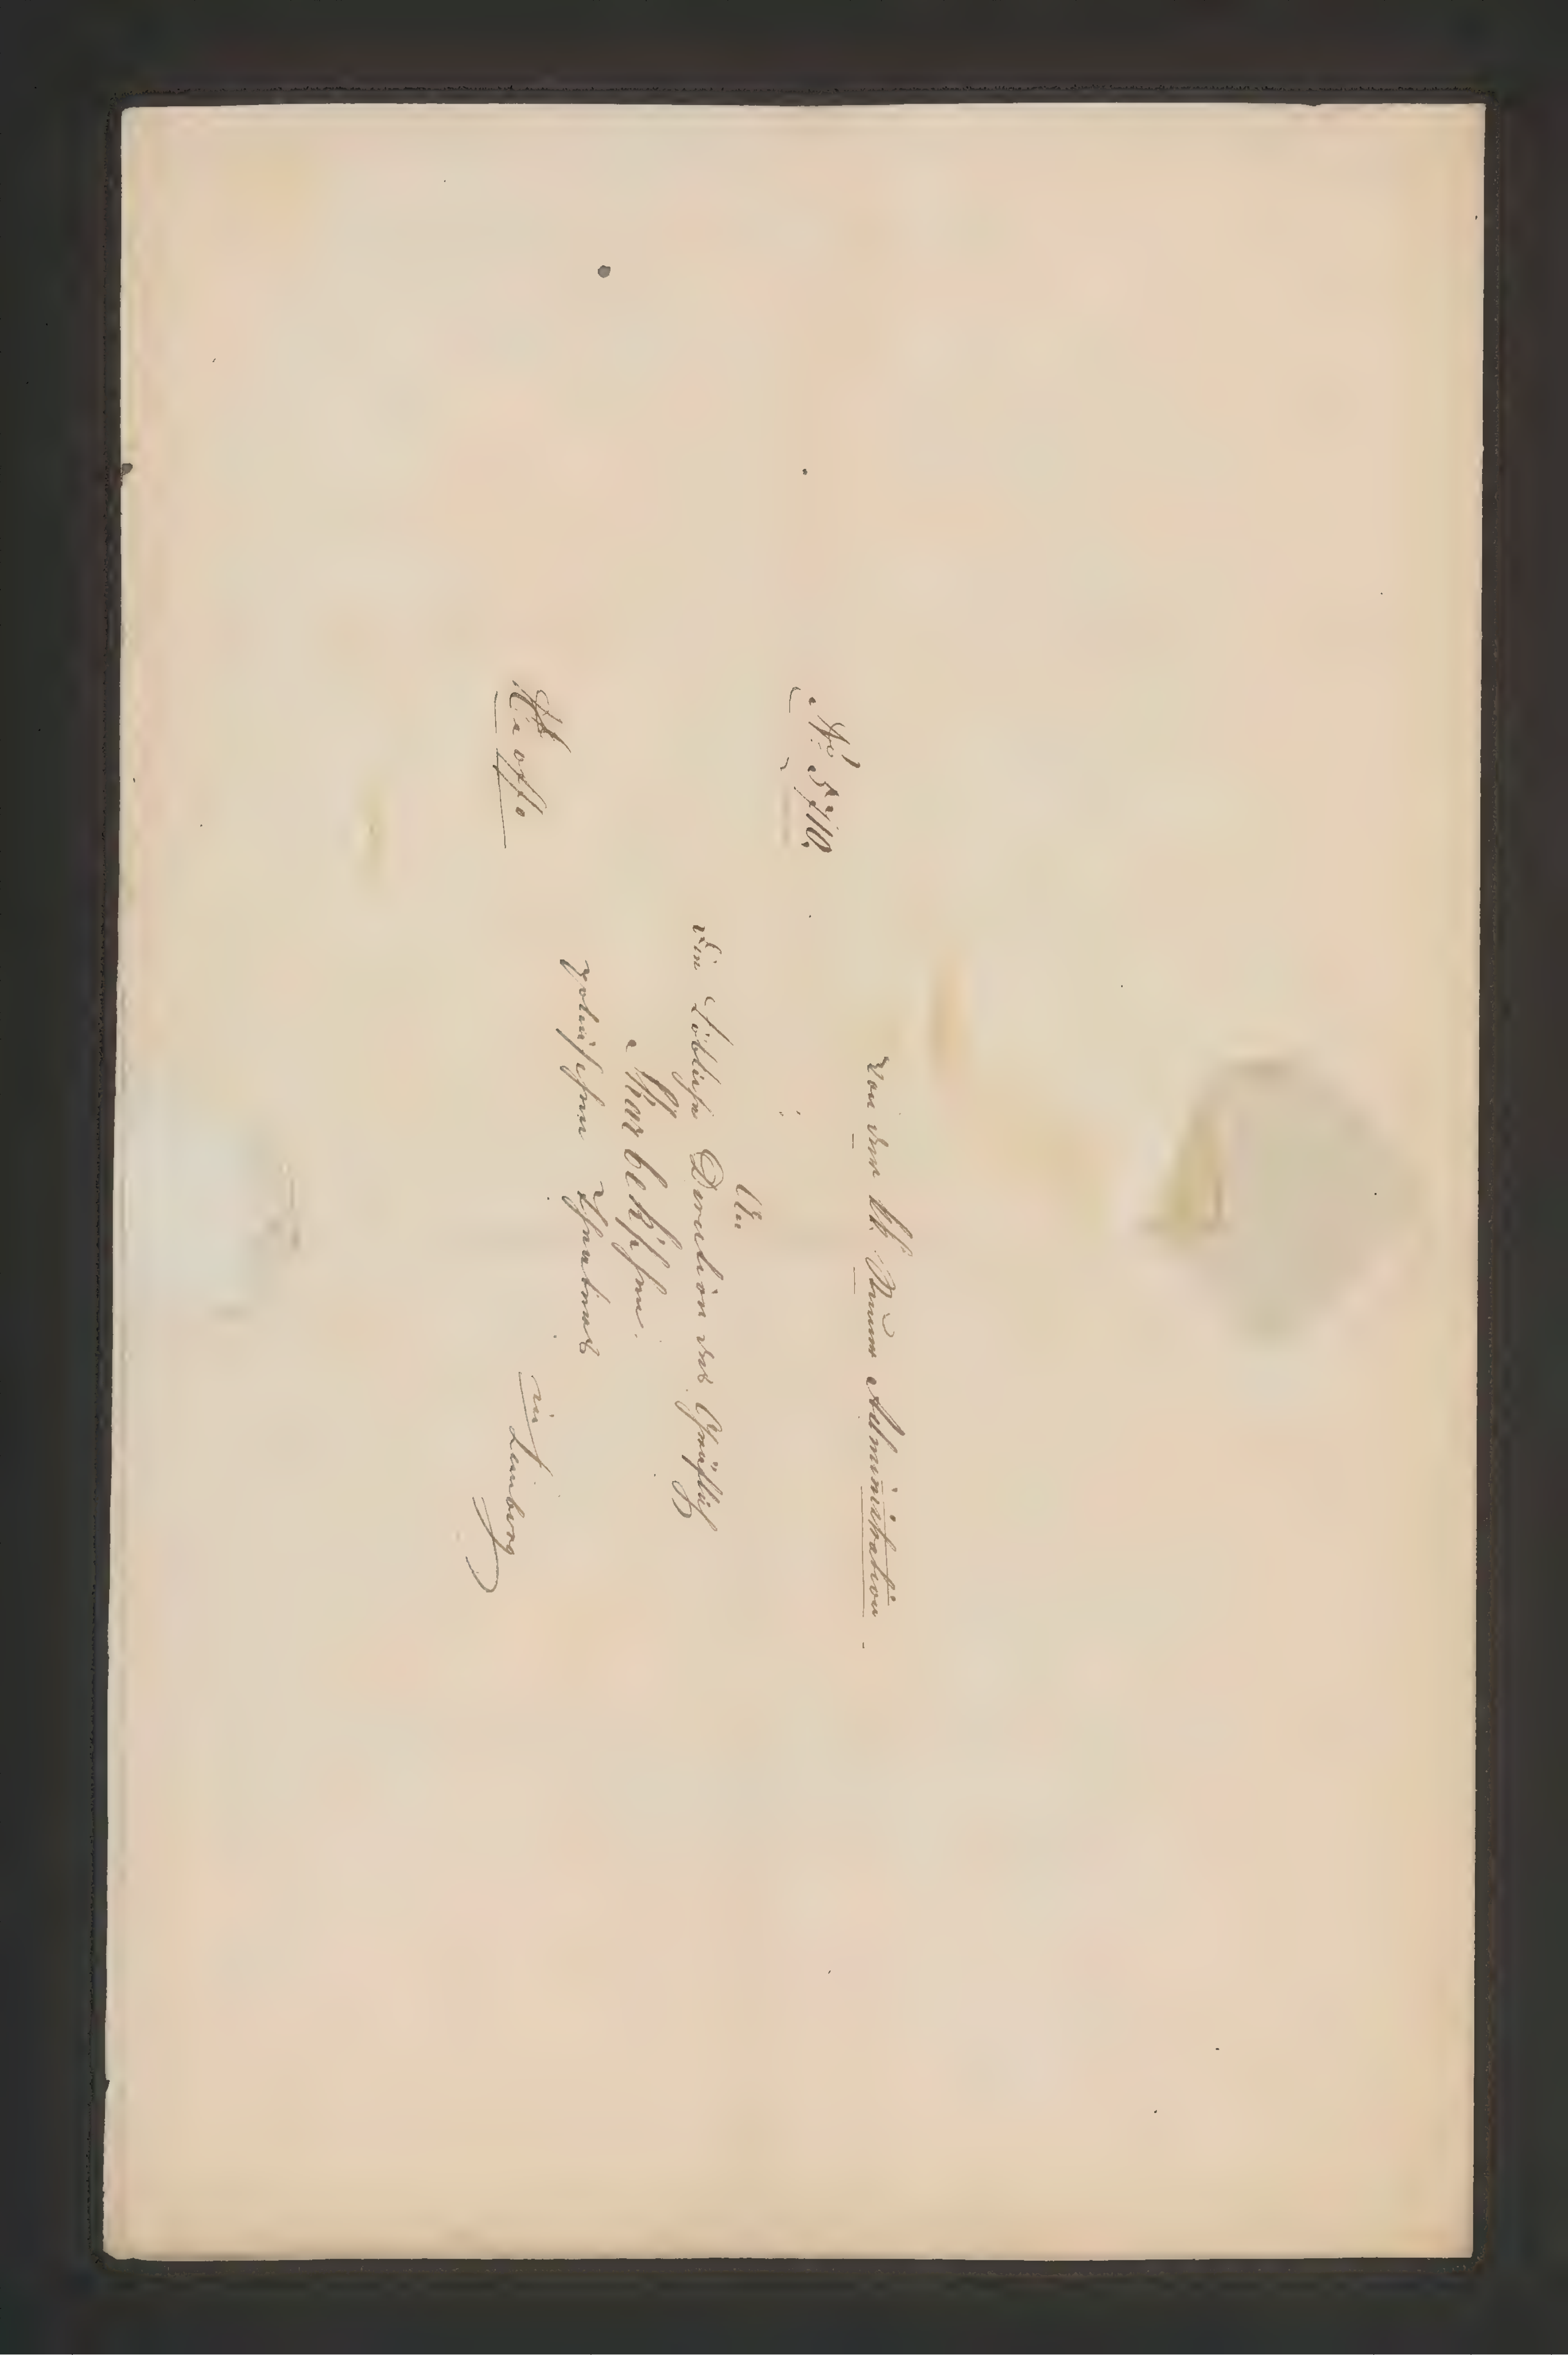 Von der kk. Kammer Administration
No 5710.
An
die Löbliche Direction des Gräflich
Skarbekschen
polnischen Theaters
in Lemberg